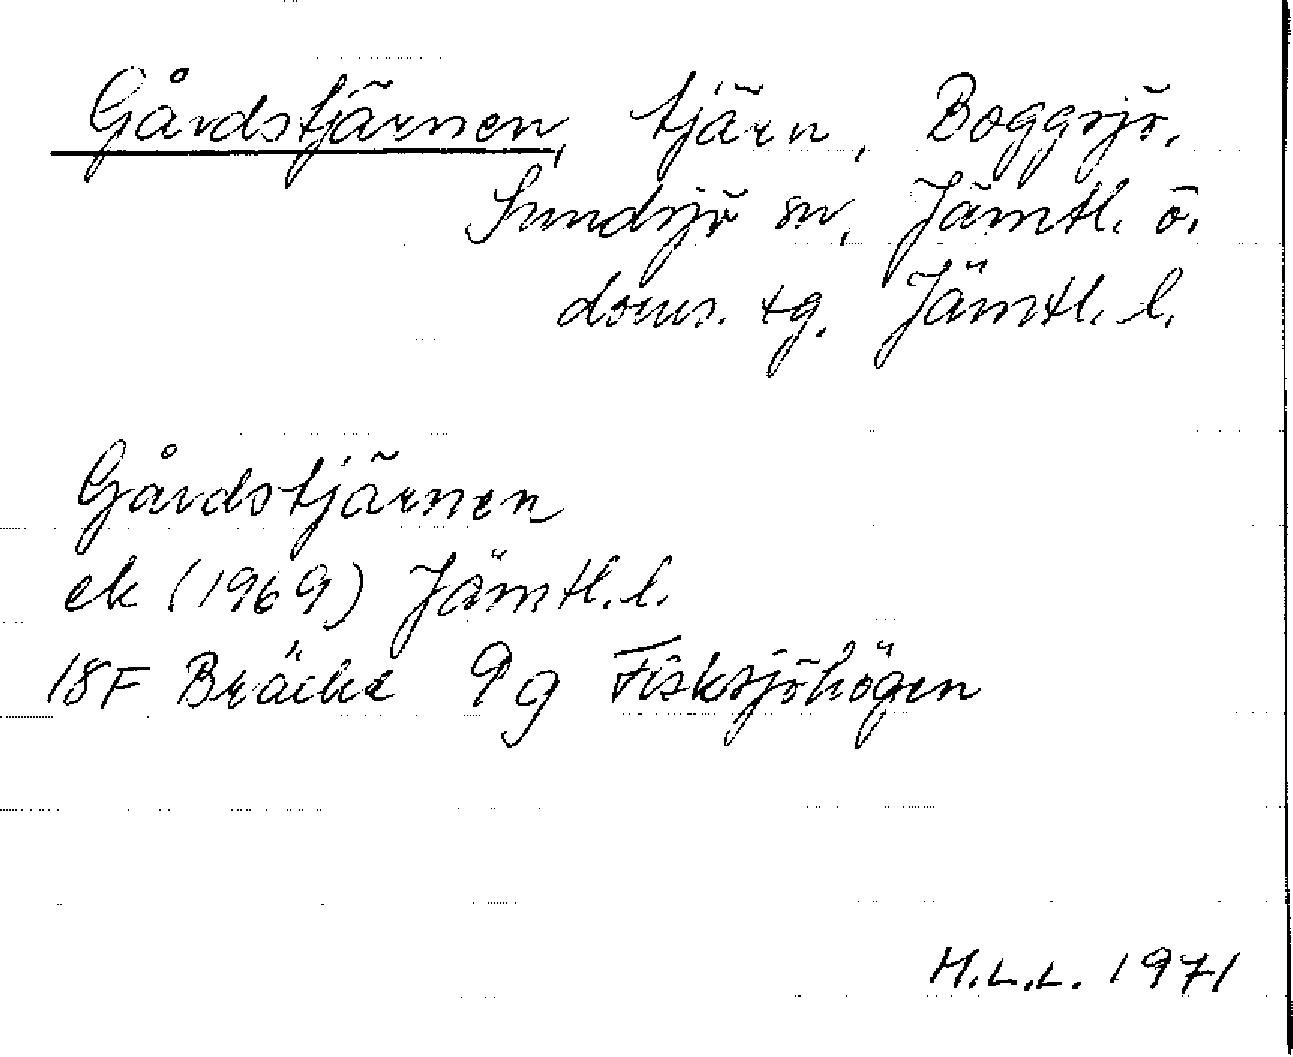 Gårdstjärnen, tjärn, Boggsjö,
Sundsjö sn, Jämtl. ö.
doms. tg. Jämtl. l.
Gårdstjärnen
ek (1969) Jämtl. l.
18F Bräcke 9g Fisksjöhögen
H.L.L. 1971